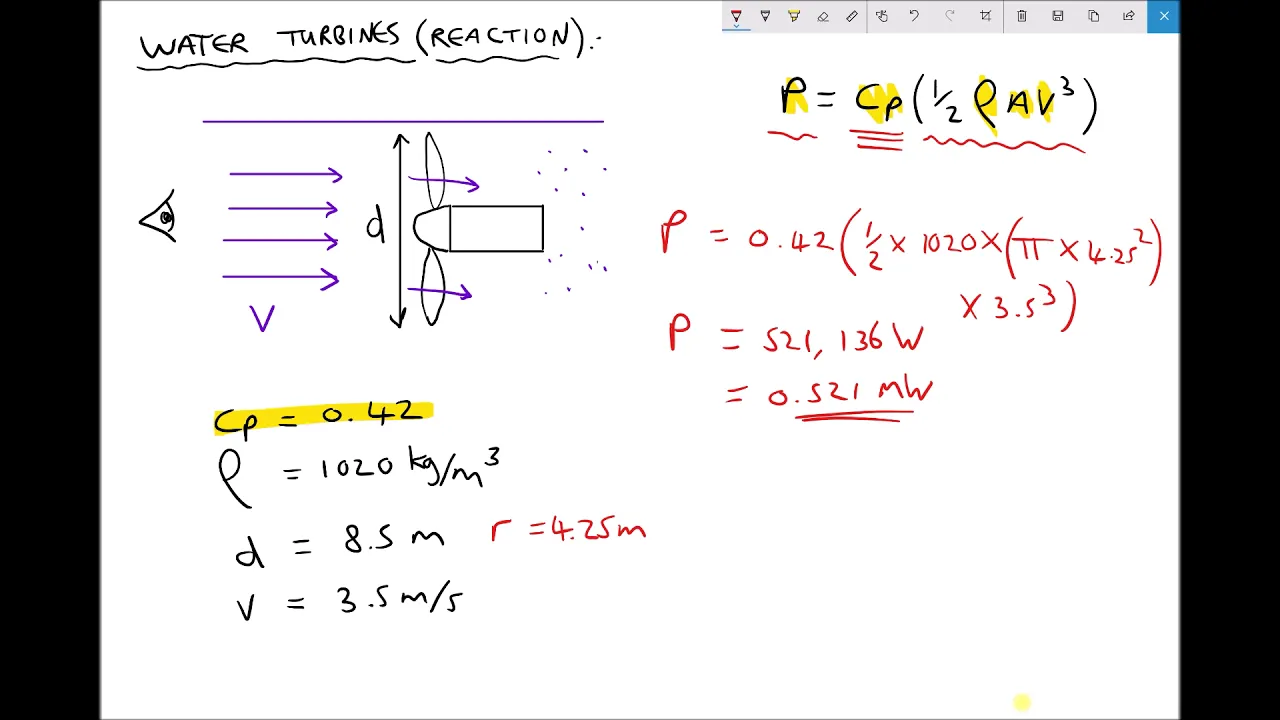 WATER TURBINES (REACTION).
P = Cp (1/2 ρ A V³)
d
V
P = 0.42 (1/2 × 1020 × (π × 4.25²)
× 3.5³)
P = 521,136 W
= 0.521 MW
Cp = 0.42
ρ = 1020 kg/m³
d = 8.5 m r = 4.25m
V = 3.5 m/s